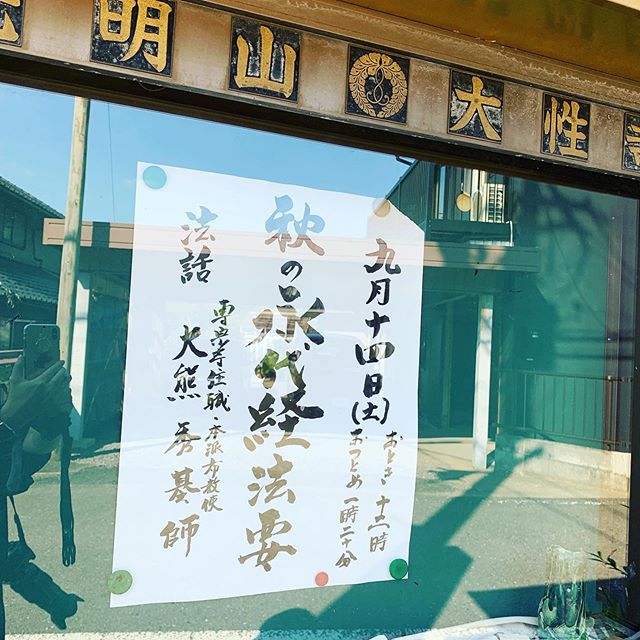 明山 大性寺
九月十四日(土)
おとき 十二時
おつとめ 一時二十分
秋の永代経法要
法話
専宗寺住職・本派布教使
大熊秀基師